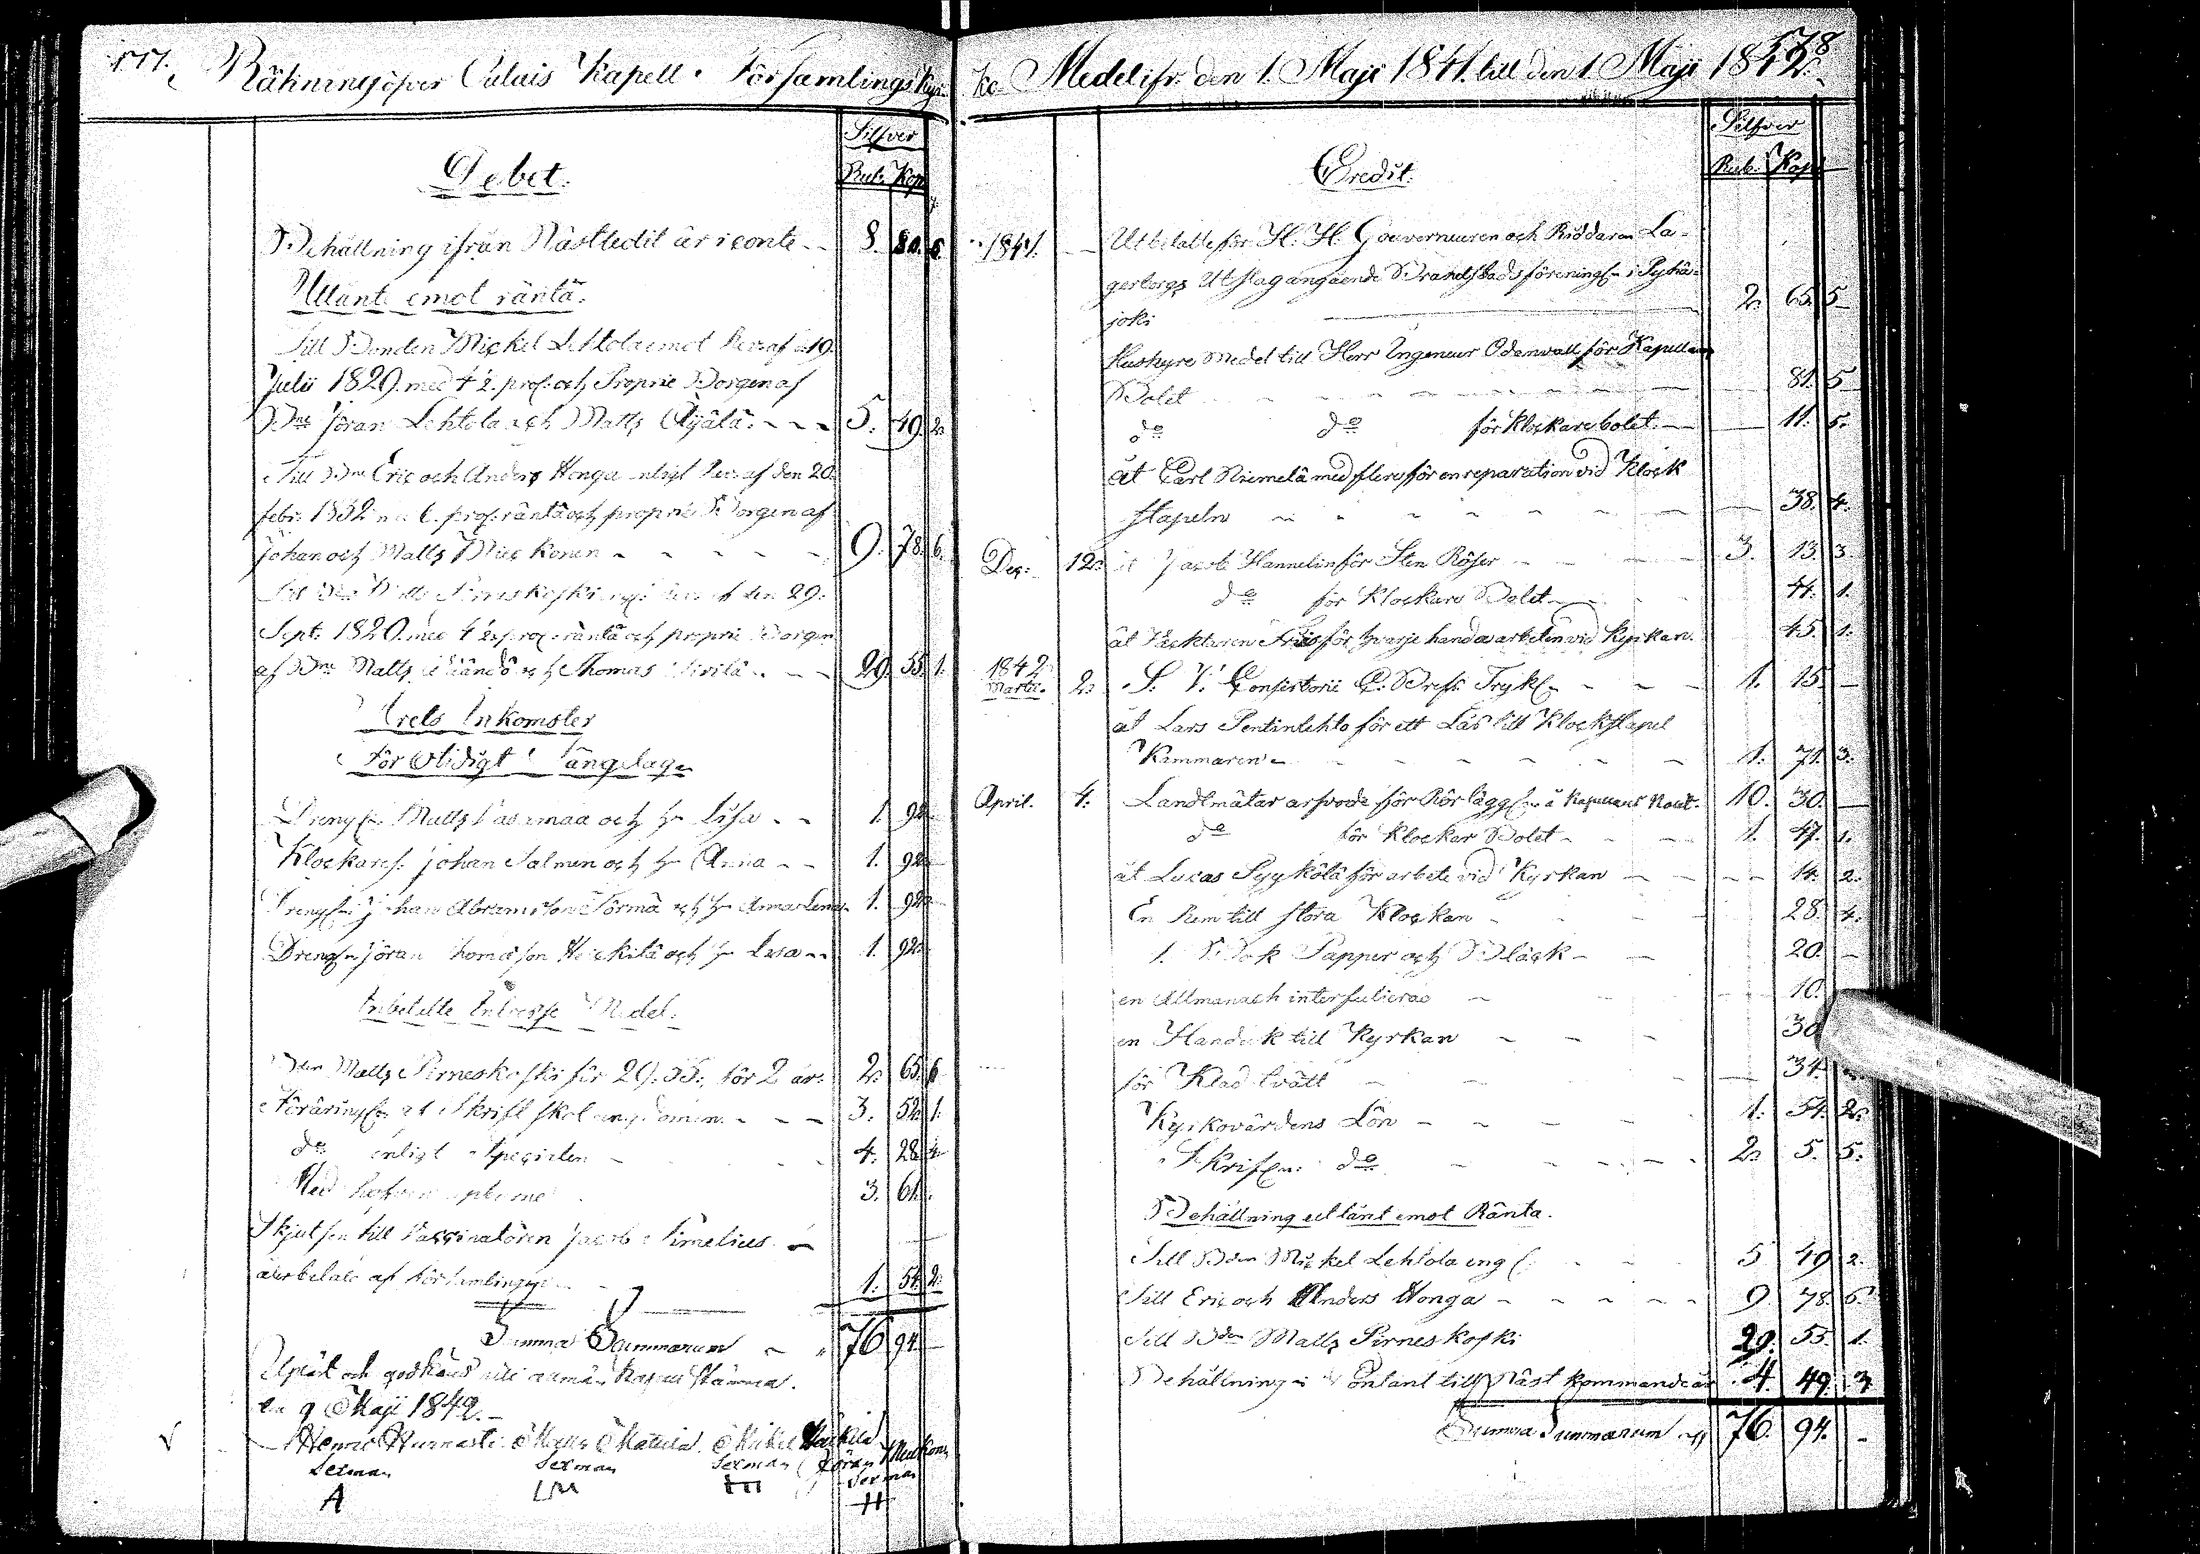 577. Räkning öfver Pulais Kapell Församlings Kyr-
Debet.
Silfver
Rub. Kop.
Behållning ifrån Nästledit år i conto 8. 80. 6.
Utlänt emot ränta.
Till Bonden Mickel Lehtola emot Revers af d. 19.
Julii 1829. med 4½ proc. och Proprie Borgen af
Bne Jöran Lehtola och Matts Äijälä. 5. 49. 2.
Till Bne Eric och Anders Honga enligt Revers af den 20.
Febr. 1832 med 6. proc. ränta och proprie Borgen af
Johan och Matts Mieckonen 9. 78. 6.
Till Bn Matts Pirneskoski af den 29.
Sept. 1820. med 4½ proc. ränta och proprie Borgen
af Bne Matts och Thomas 29. 55. 1.
Årets Inkomster
För otidigt Sängelag
Drengen Matts och h. Lisa 1. 92.
Klockares. Johan Salmen och h. Anna 1. 92.
Drengen Johan Abramsson Törmä och h. Anna Lena 1. 92.
Drengen Jöran Thomasson Heickilä och h. Lisa 1. 92.
Inbetalte Intresse Medel.
Bden Matts Pirneskoski för 29. 55. för 2 år. 2. 65. 6.
Föräringen at Skriftskol 3. 52. 1.
do enligt 4. 28. 4.
Med 3. 61.
Skjutsen till Vaccinatören Jacob Simelius
återbetald af Församlingen 1. 54. 2.
Summa Summarum 76 94.
Upläst och godkänd vid
den 9 Maji 1842.
Henric Hurnasti Matts Matula Mickel Heickilä Jöran Mieckonen
Sexman Sexman Sexman Sexman
A LM H
ko Medel ifr. den 1. Maji 1841. till den 1. Maji 1842.
578
Credit.
Silfver
Rub. Kop.
1841. Utbetalte för H. H. Gouverneuren och Riddaren La-
gerborgs Utslag angående Brandstadsföreningen i Pyhä-
joki 2. 65. 5
Hushyre Medel till Herr Ingeneur Odenwall för Kapellans
Bolet 81. 5
do do för Klockare bolet. 11. 5.
åt Carl Niemelä med flere för en reparation vid Klock
stapeln 38. 4.
Dec. 12. åt Jacob Hannelin för Sten Röser 3. 13. 3.
do för Klockare Bolet 44. 1.
åt för hvarje handa arbeten vid Kyrkan. 45. 1.
1842
Martii. 2. S. V. Consistorii C. Bref. Tryk 1. 15.
åt Lars Pentinlehto för ett Lås till Klockstapel
Kammaren 1. 71. 3.
April. 4. Landtmätar arfvode för Rörläggn å Kapellans Bolet. 10. 30.
do för Klockar Bolet 1. 47. 1.
åt Lucas Pyykölä för arbete vid Kyrkan 14. 2.
En Rem till stora Klockan 28. 4.
1. Bok Papper och Bläck 20.
en Allmanach 10.
en Handuk till Kyrkan 30
för Klad tvätt 34.
Kyrkovärdens Lön 1. 54. 2.
Skrifn. do 2. 5. 5.
Behållning utlänt emot Ränta.
Till Bden Mickel Lehtola 5 49 2.
Till Eric och Anders Honga 9. 78. 6.
Till Bden Matts Pirneskoski 29. 55. 1.
Behållning i till Näst kommande år 4. 49. 3.
Summa Summarum 76. 94.